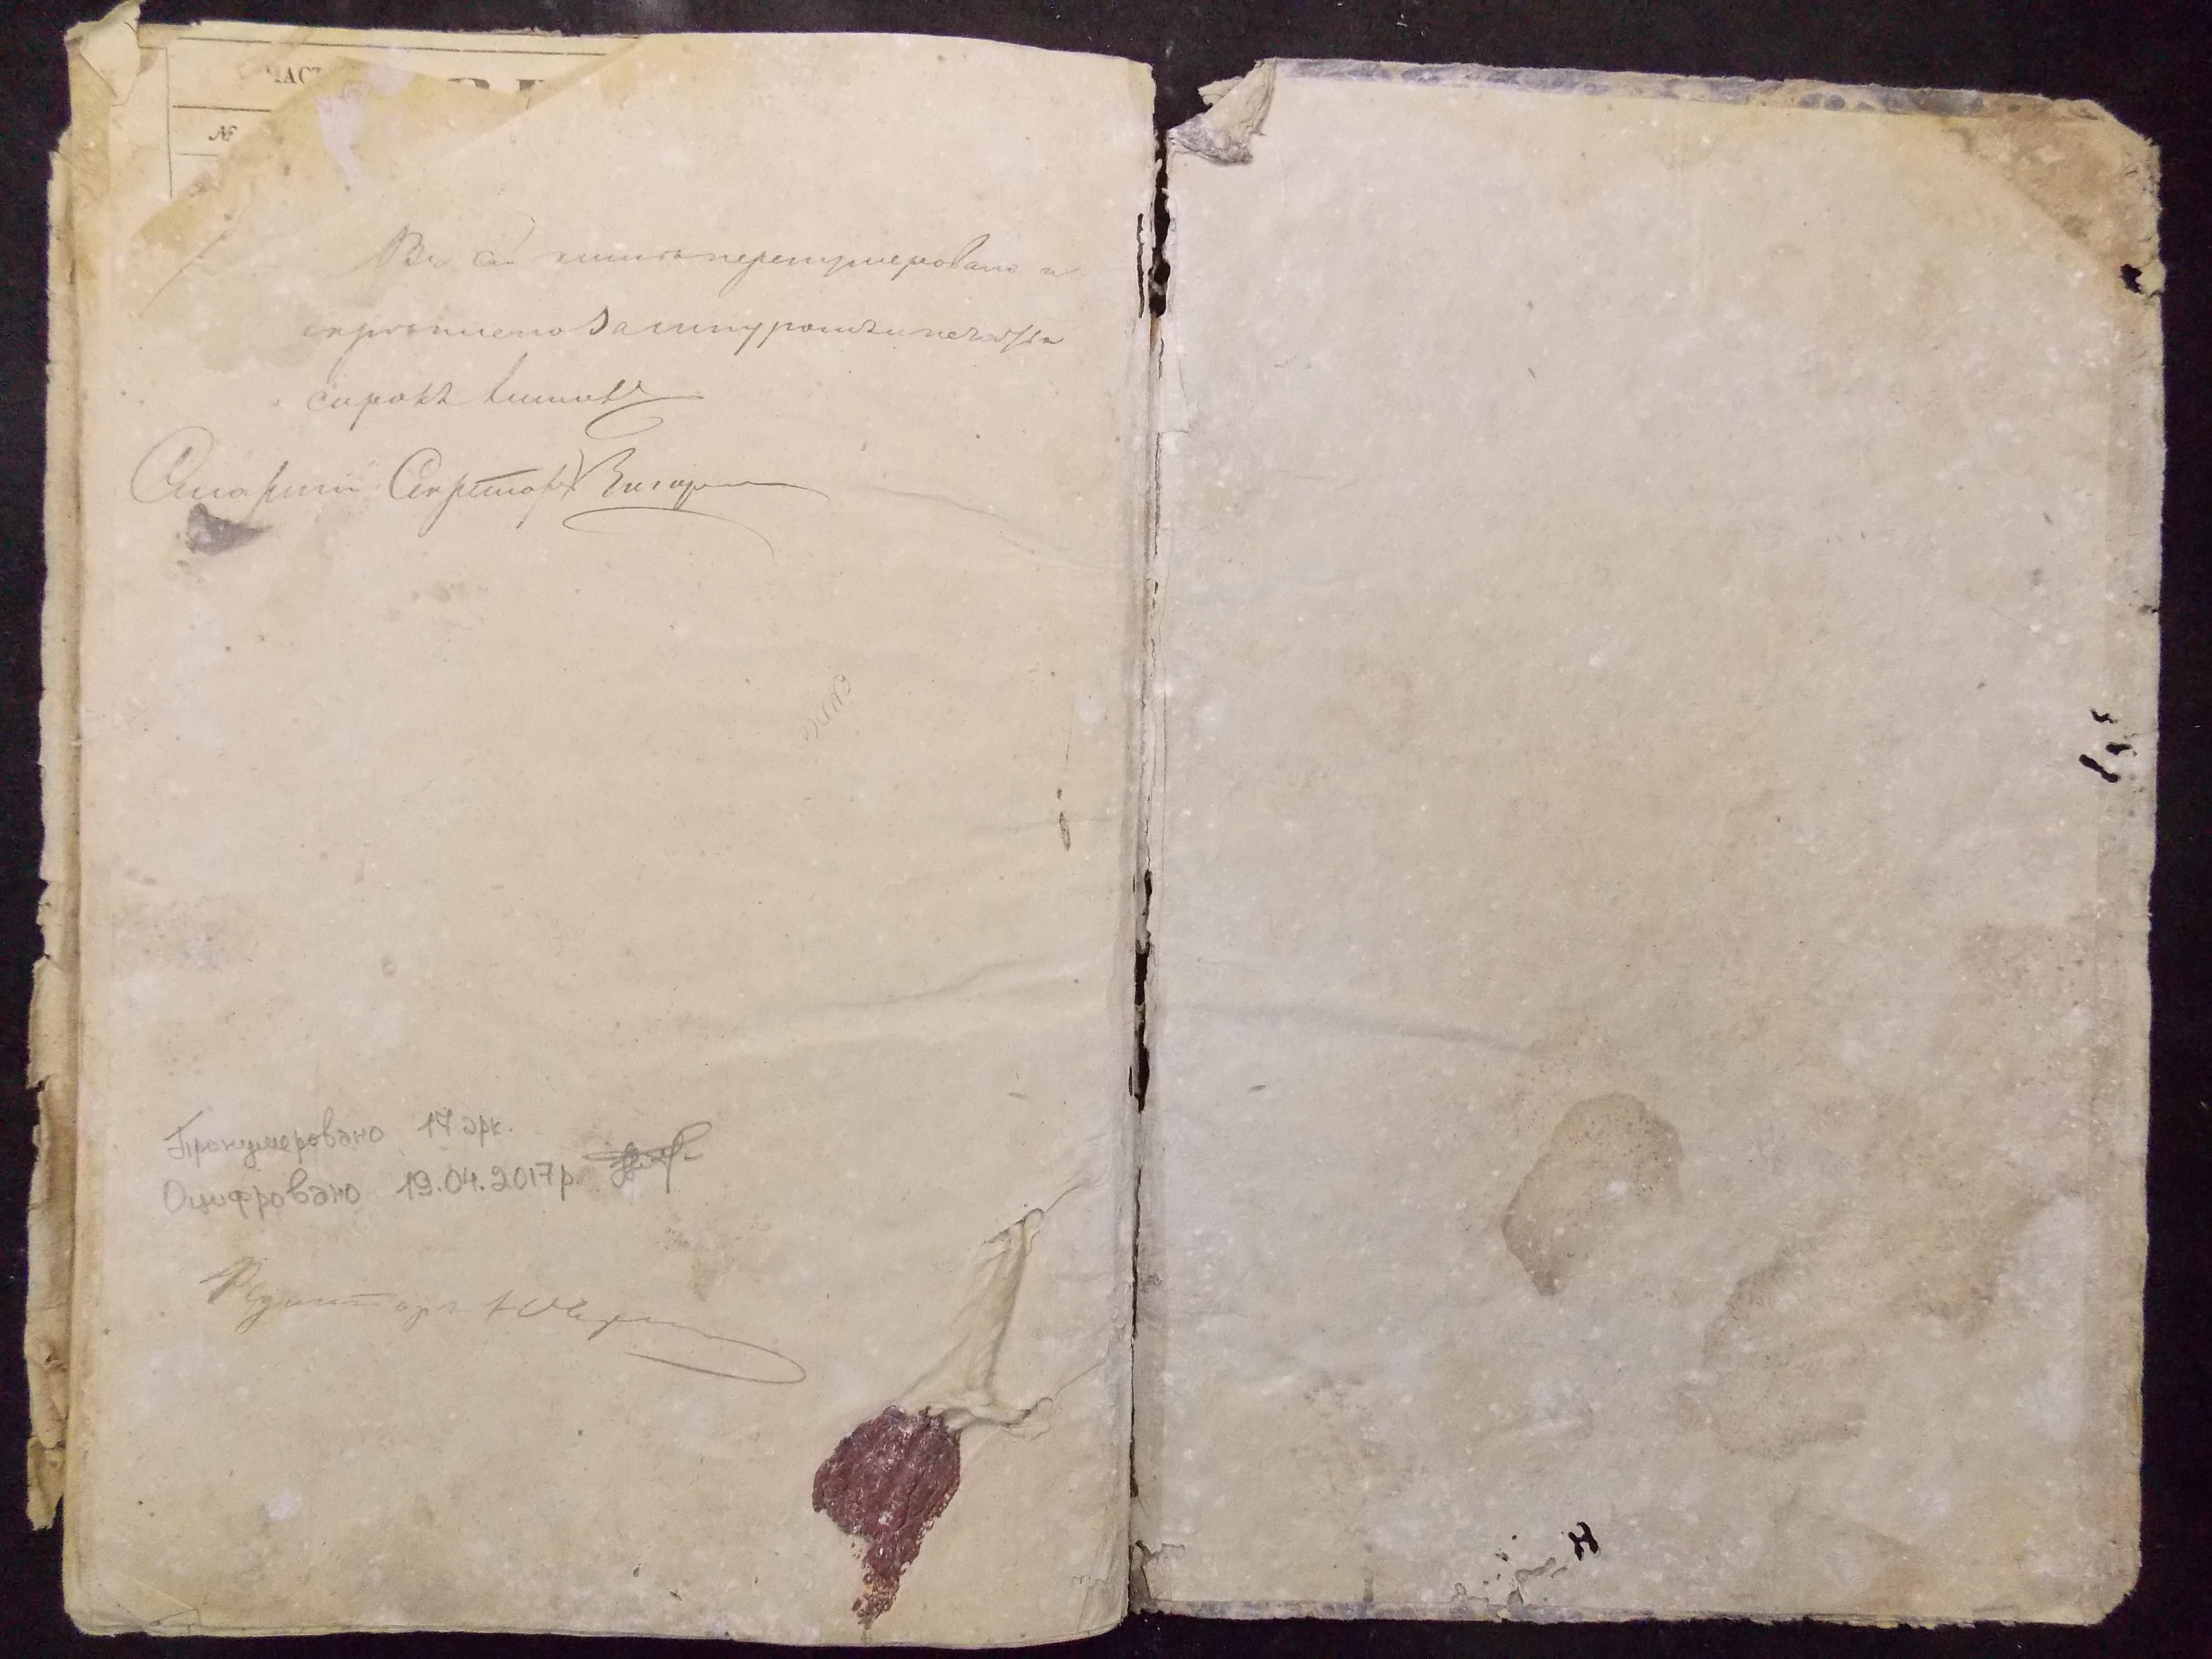 ЧАСТ
№
Въ сей книгѣ перенумеровано и
скрѣплено за шнуромъ и печатью
сорокъ листовъ
Старшій Секретарь
Пронумеровано 17 арк.
Оцифровано 19.04.2017р.
Редакторъ